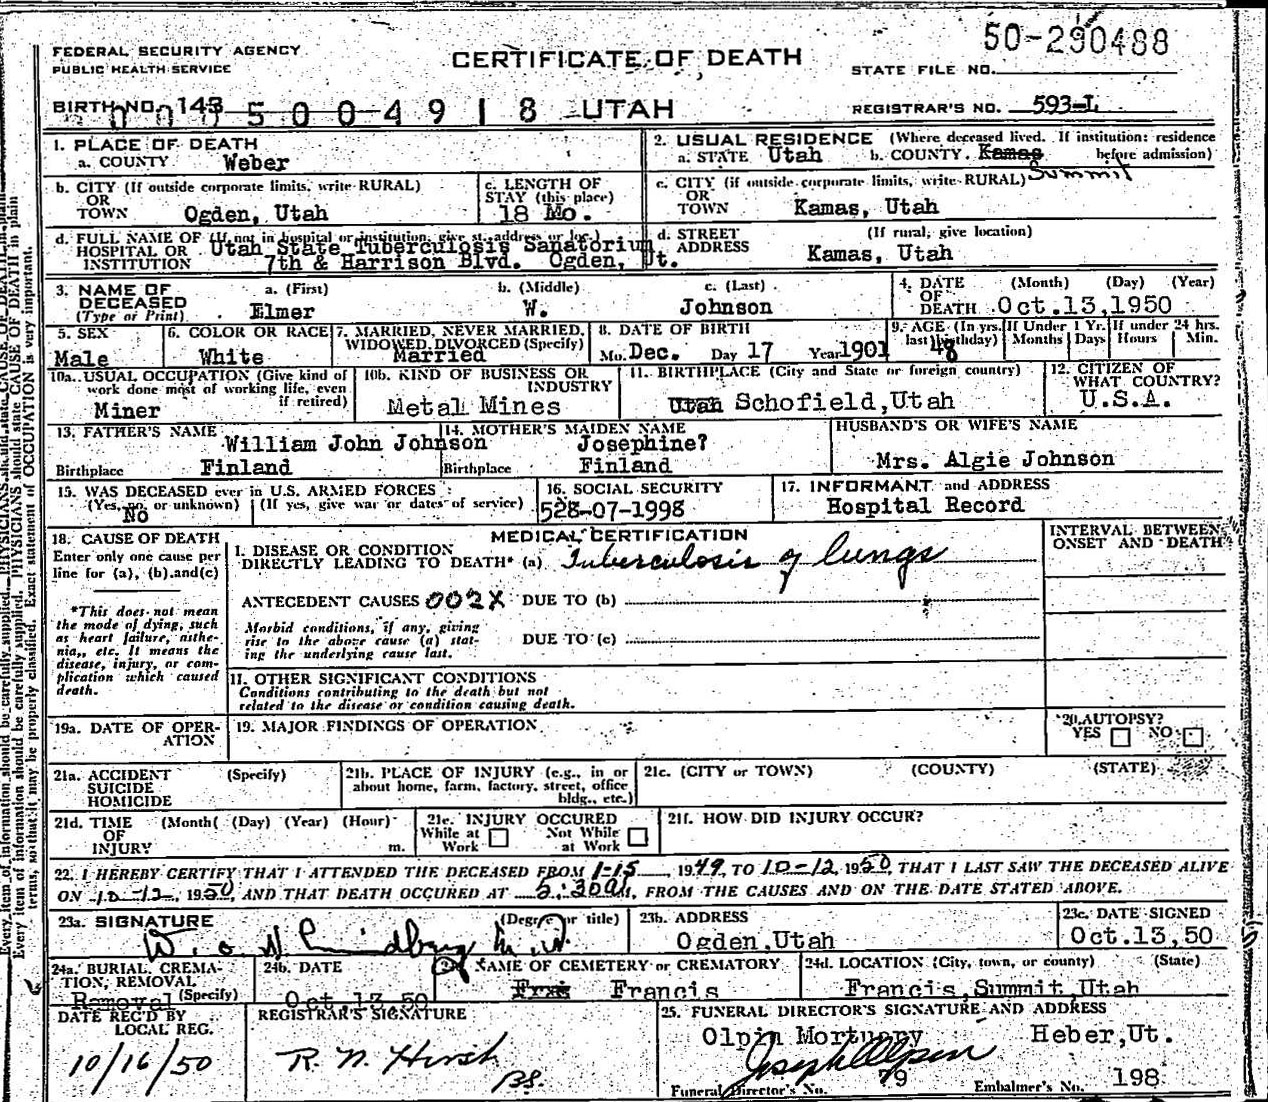 50-290488
FEDERAL SECURITY AGENCY
PUBLIC HEALTH SERVICE
CERTIFICATE OF DEATH
STATE FILE NO.
BIRTH NO. 143
0 0 0 5 0 0 4 9 1 8 UTAH
REGISTRAR'S NO. 593-L
1. PLACE OF DEATH
a. COUNTY Weber
2. USUAL RESIDENCE (Where deceased lived. If institution: residence before admission)
a. STATE Utah b. COUNTY Kamas Summit
b. CITY (If outside corporate limits, write RURAL)
OR
TOWN Ogden, Utah
c. LENGTH OF
STAY (this place)
18 Mo.
c. CITY (if outside corporate limits, write RURAL)
OR
TOWN Kamas, Utah
d. FULL NAME OF (If not in hospital or institution, give st. address or loc.)
HOSPITAL OR Utah State Tuberculosis Sanatorium
INSTITUTION 7th & Harrison Blvd. Ogden, Ut.
d. STREET (If rural, give location)
ADDRESS Kamas, Utah
3. NAME OF DECEASED (Type or Print)
a. (First) b. (Middle) c. (Last)
Elmer W. Johnson
4. DATE OF DEATH (Month) (Day) (Year)
Oct.13,1950
5. SEX
Male
6. COLOR OR RACE
White
7. MARRIED, NEVER MARRIED,
WIDOWED, DIVORCED (Specify)
Married
8. DATE OF BIRTH
Mo. Dec. Day 17 Year 1901
9. AGE (In yrs. last birthday) 48
If Under 1 Yr. Months Days
If under 24 hrs. Hours Min.
10a. USUAL OCCUPATION (Give kind of
work done most of working life, even
if retired)
Miner
10b. KIND OF BUSINESS OR
INDUSTRY
Metal Mines
11. BIRTHPLACE (City and State or foreign country)
Utah Schofield, Utah
12. CITIZEN OF
WHAT COUNTRY?
U.S.A.
13. FATHER'S NAME
William John Johnson
Birthplace Finland
14. MOTHER'S MAIDEN NAME
Josephine?
Birthplace Finland
HUSBAND'S OR WIFE'S NAME
Mrs. Algie Johnson
15. WAS DECEASED ever in U.S. ARMED FORCES
(Yes, no, or unknown) (If yes, give war or dates of service)
No
16. SOCIAL SECURITY
528-07-1998
17. INFORMANT and ADDRESS
Hospital Record
18. CAUSE OF DEATH
Enter only one cause per
line for (a), (b), and (c)
*This does not mean
the mode of dying, such
as heart failure, asthe-
nia, etc. It means the
disease, injury, or com-
plication which caused
death.
MEDICAL CERTIFICATION
INTERVAL BETWEEN
ONSET AND DEATH
I. DISEASE OR CONDITION
DIRECTLY LEADING TO DEATH* (a) Tuberculosis of lungs
ANTECEDENT CAUSES 002X DUE TO (b)
Morbid conditions, if any, giving
rise to the above cause (a) stat-
ing the underlying cause last.
DUE TO (c)
II. OTHER SIGNIFICANT CONDITIONS
Conditions contributing to the death but not
related to the disease or condition causing death.
19a. DATE OF OPER-
ATION
19. MAJOR FINDINGS OF OPERATION
20. AUTOPSY?
YES NO
21a. ACCIDENT (Specify)
SUICIDE
HOMICIDE
21b. PLACE OF INJURY (e.g., in or
about home, farm, factory, street, office
bldg., etc.)
21c. (CITY or TOWN) (COUNTY) (STATE)
21d. TIME (Month) (Day) (Year) (Hour)
OF
INJURY m.
21e. INJURY OCCURED
While at Work Not While at Work
21f. HOW DID INJURY OCCUR?
22. I HEREBY CERTIFY THAT I ATTENDED THE DECEASED FROM 1-15, 1949, TO 10-12, 1950, THAT I LAST SAW THE DECEASED ALIVE
ON 10-12, 1950, AND THAT DEATH OCCURED AT 5:30 AM, FROM THE CAUSES AND ON THE DATE STATED ABOVE.
23a. SIGNATURE (Degree or title)
M.D.
23b. ADDRESS
Ogden, Utah
23c. DATE SIGNED
Oct.13,50
24a. BURIAL, CREMA-
TION, REMOVAL
Removal (Specify)
24b. DATE
Oct.13,50
NAME OF CEMETERY or CREMATORY
Francis
24d. LOCATION (City, town, or county) (State)
Francis, Summit, Utah
DATE REC'D BY
LOCAL REG.
10/16/50
REGISTRAR'S SIGNATURE
R. N. Hirsh
BS.
25. FUNERAL DIRECTOR'S SIGNATURE AND ADDRESS
Olpin Mortuary Heber, Ut.
Joseph Olpin
Funeral Director's No. 79 Embalmer's No. 198
Every item of information should be carefully supplied. PHYSICIANS should state CAUSE OF DEATH in plain
terms, so that it may be properly classified. Exact statement of OCCUPATION is very important.